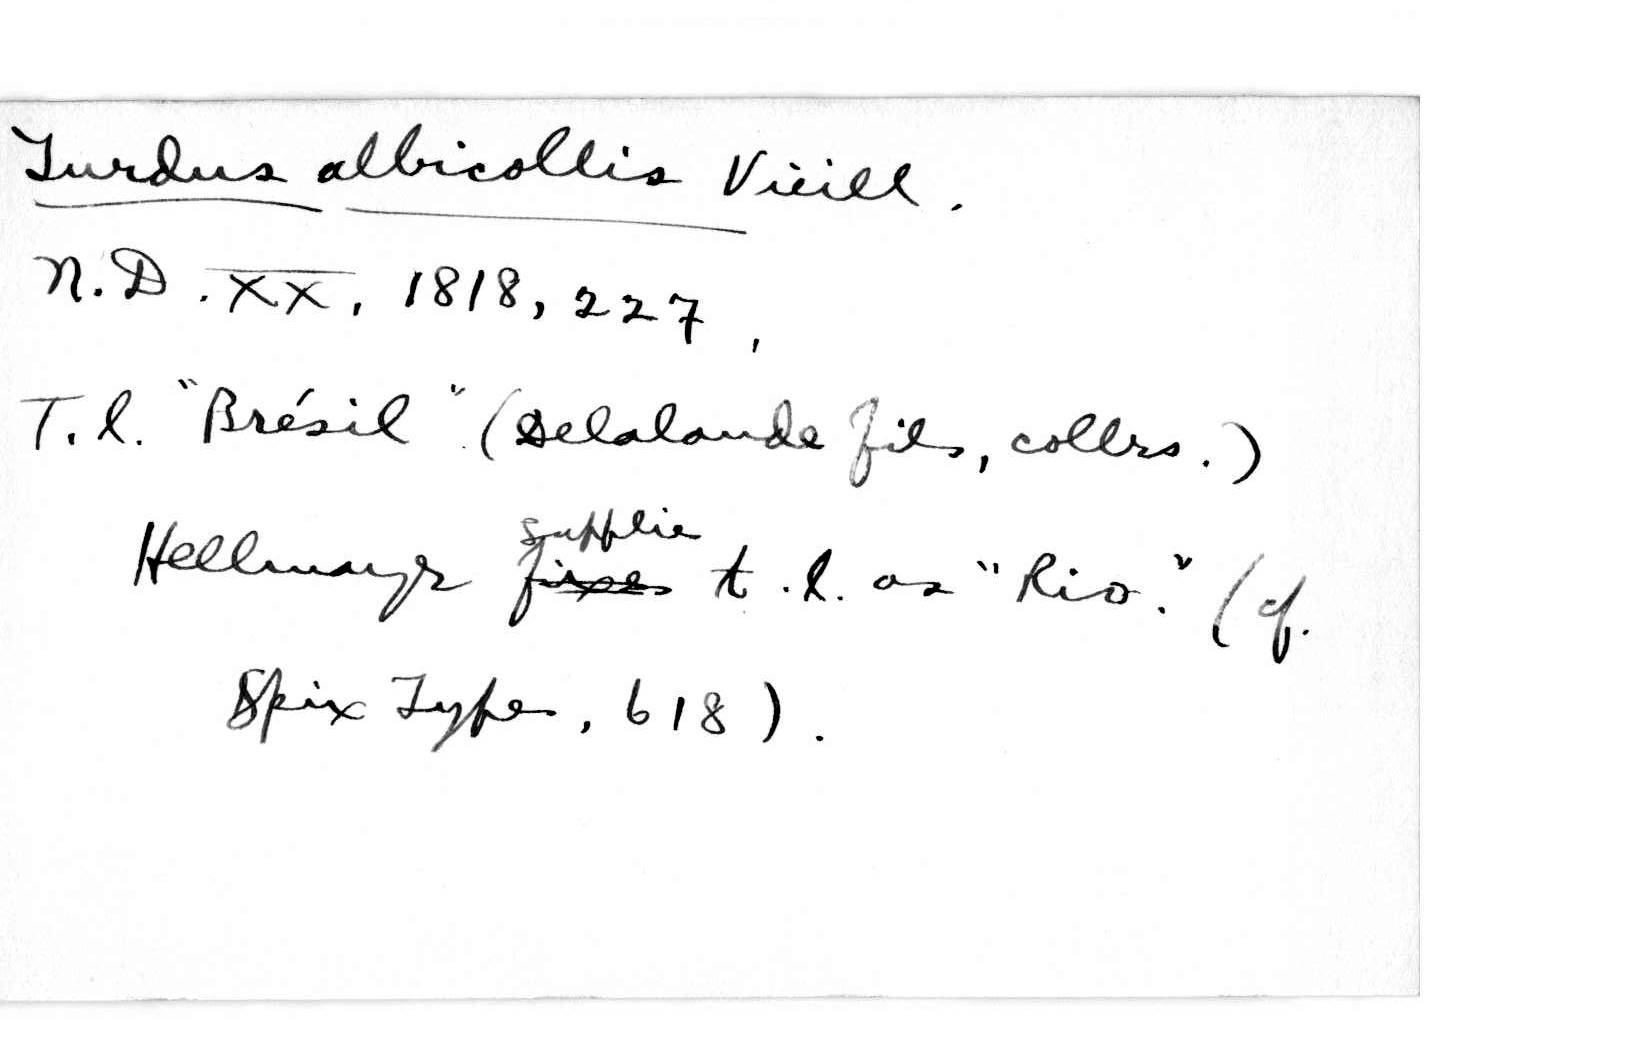 Turdus albicollis Vieill.
N.D. XX, 1818, 227,
T.l. "Brésil" (Delalande fils, collrs.)
supplies
Hellmayr fixes t.l. as "Rio." (cf.
Spix Types, 618).